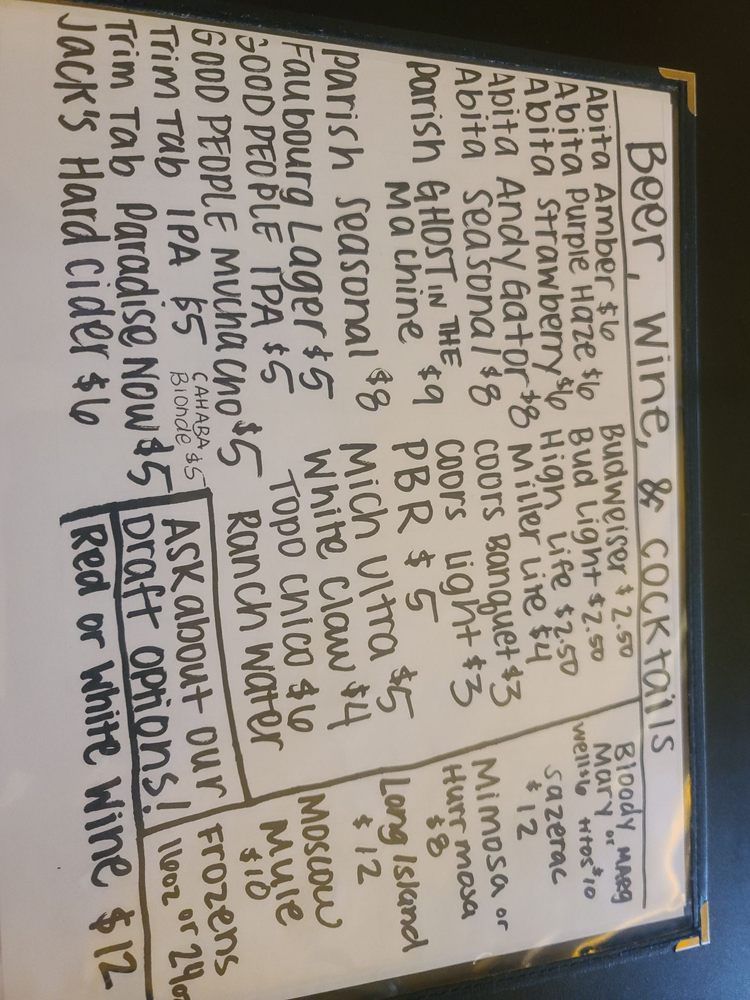 Beer, Wine, & cocktails
Abita Amber $6
Abita Purple Haze $6
Abita Strawberry $6
Abita Andy Gator $8
Abita Seasonal $8
Parish GHOST IN THE
Machine $9
Parish Seasonal $8
Faubourg Lager $5
GOOD PEOPLE IPA $5
GOOD PEOPLE Muchacho $5
Trim Tab IPA $5
CAHABA $5
Blonde
Trim Tab Paradise Now $5
Jack's Hard Cider $6
Budweiser $2.50
Bud Light $2.50
High Life $2.50
Miller Lite $4
Coors Banquet $3
Coors Light $3
PBR $5
Mich Ultra $5
White Claw $4
Topo Chico $6
Ranch Water
Ask about our
Draft options!
Red or White Wine $12
Bloody Marg
Mary or
well $6 titos $10
Sazerac
$12
Mimosa or
Hurrmosa
$8
Long Island
$12
Moscow
Mule
$10
Frozens
16oz or 24oz